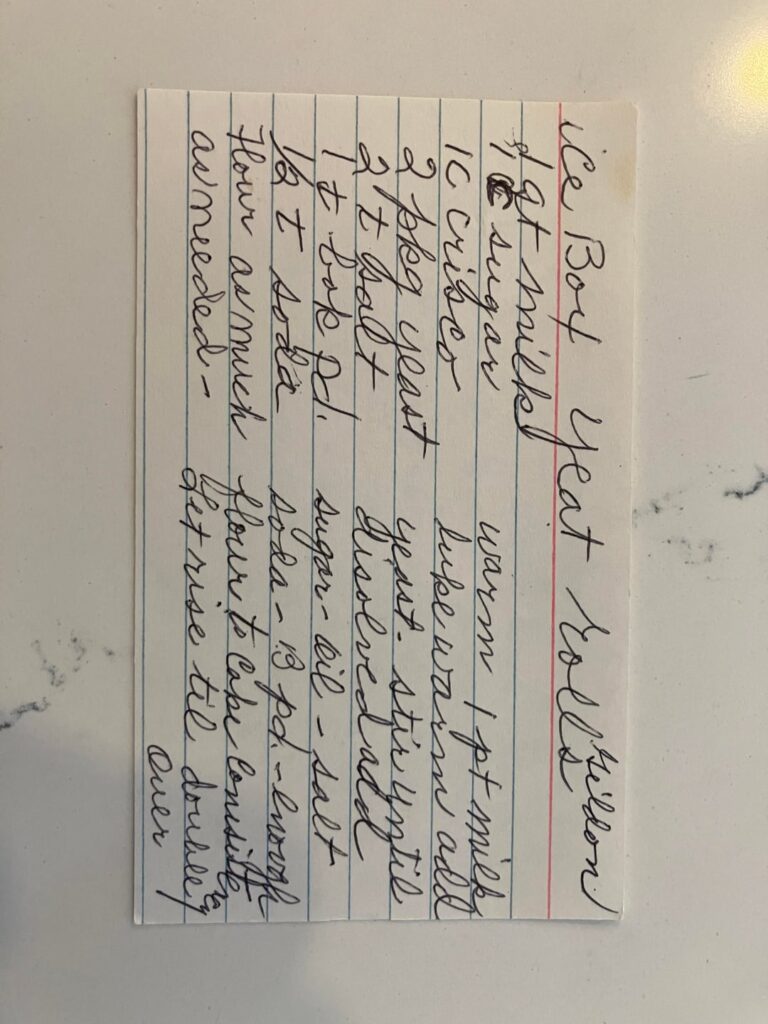 ice Box Yeast Rolls
Gildon
1 qt milk
1 C sugar
1C crisco
2 pkg yeast
2 t salt
1 t bak pd.
1/2 t soda
Flour as much
as needed -
warm 1 pt milk
luke warm add
yeast - stir until
disolved add
sugar - oil - salt
soda - B pd. - enough
flour to cake
Let rise til double
over